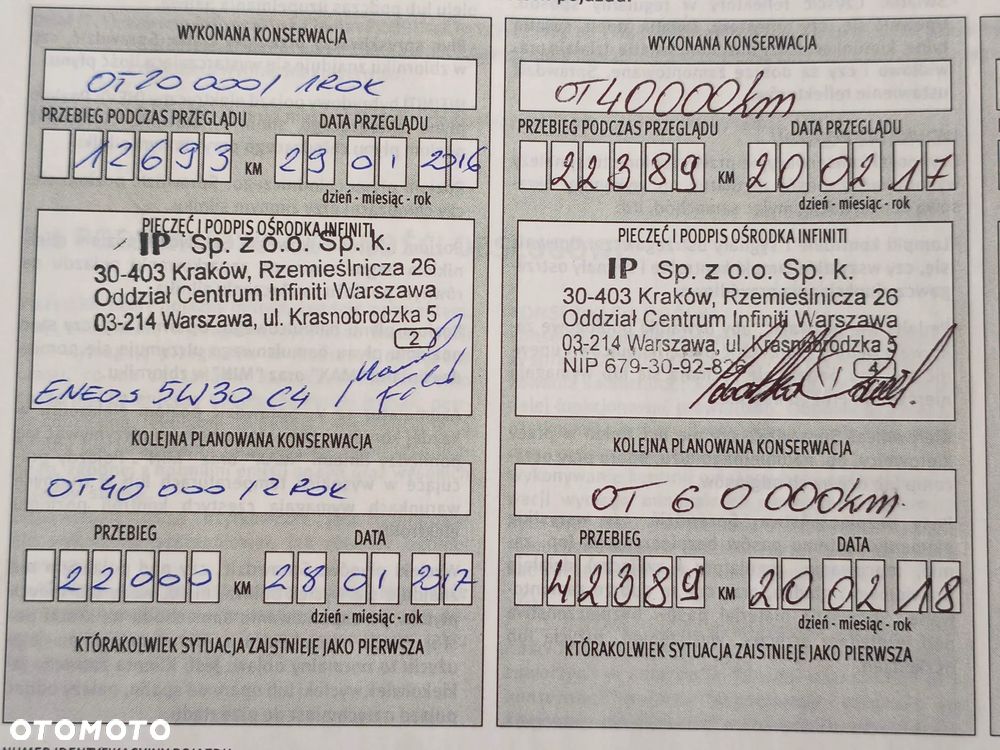 WYKONANA KONSERWACJA
OT20 000 / 1ROK
PRZEBIEG PODCZAS PRZEGLĄDU DATA PRZEGLĄDU
12693 KM 29 01 2016
dzień - miesiąc - rok
PIECZĘĆ I PODPIS OŚRODKA INFINITI
IP Sp. z o.o. Sp. k.
30-403 Kraków, Rzemieślnicza 26
Oddział Centrum Infiniti Warszawa
03-214 Warszawa, ul. Krasnobrodzka 5
2
ENEOS 5W30 C4
KOLEJNA PLANOWANA KONSERWACJA
OT40 000 / 2 ROK
PRZEBIEG DATA
22000 KM 28 01 2017
dzień - miesiąc - rok
KTÓRAKOLWIEK SYTUACJA ZAISTNIEJE JAKO PIERWSZA
WYKONANA KONSERWACJA
OT 40000km
PRZEBIEG PODCZAS PRZEGLĄDU DATA PRZEGLĄDU
22389 KM 20 02 17
dzień - miesiąc - rok
PIECZĘĆ I PODPIS OŚRODKA INFINITI
IP Sp. z o.o. Sp. k.
30-403 Kraków, Rzemieślnicza 26
Oddział Centrum Infiniti Warszawa
03-214 Warszawa, ul. Krasnobrodzka 5
NIP 679-30-92-826
4
KOLEJNA PLANOWANA KONSERWACJA
OT 60 000km
PRZEBIEG DATA
42389 KM 20 02 18
dzień - miesiąc - rok
KTÓRAKOLWIEK SYTUACJA ZAISTNIEJE JAKO PIERWSZA
OTOMOTO